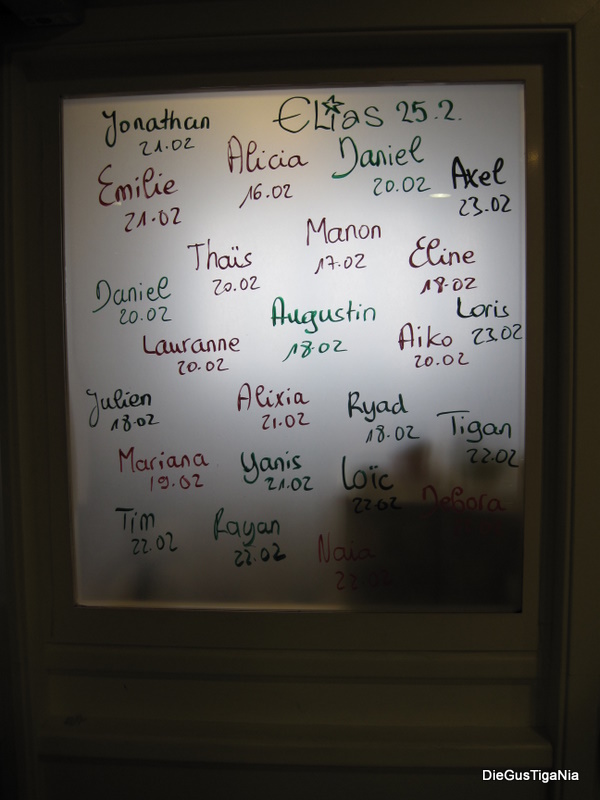 Jonathan
21.02
ELiaS 25.2.
Alicia
16.02
Daniel
20.02
Axel
23.02
Emilie
21.02
Manon
17.02
Thaïs
20.02
Eline
18.02
Daniel
20.02
Augustin
18.02
Loris
23.02
Lauranne
20.02
Aiko
20.02
Julien
18.02
Alixia
21.02
Ryad
18.02
Tigan
22.02
Mariana
19.02
Yanis
21.02
Loïc
22.02
Debora
Tim
22.02
Rayan
22.02
Naia
22.02
DieGusTigaNia